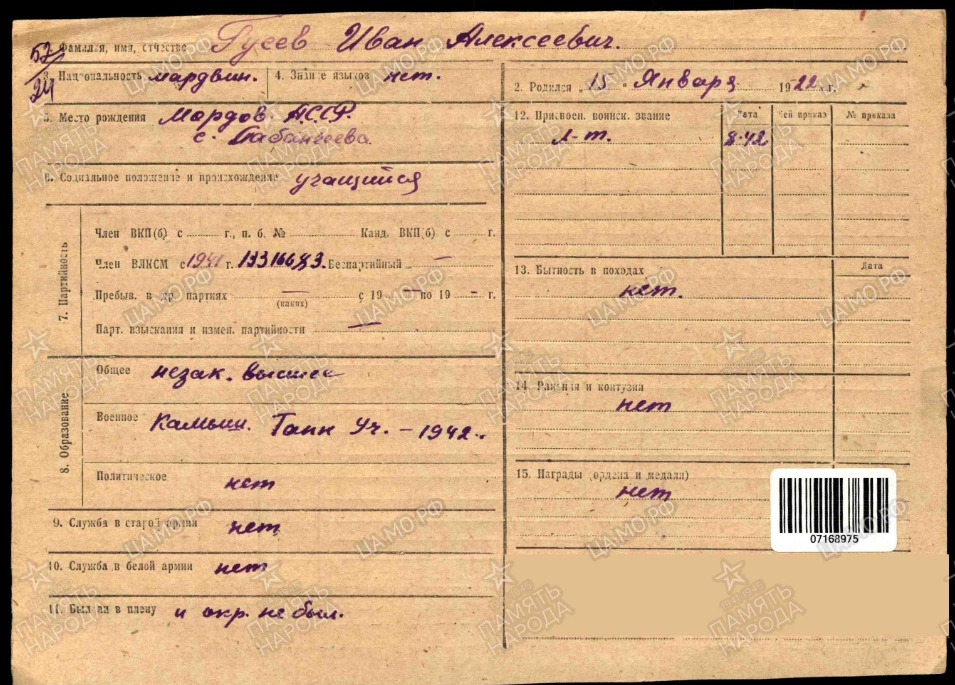 57/24
Фамилия, имя, отчество Гусев Иван Алексеевич.
3. Национальность мардвин. 4. Знание языков нет.
5. Место рождения Мордов. АССР.
с.
6. Социальное положение и происхождение учащийся
7. Партийность
Член ВКП(б) с г., п. б. № Канд. ВКП(б) с г.
Член ВЛКСМ с 1941 г. Беспартийный —
Пребыв. в др. партиях — с 19 — по 19 — г.
(каких)
Парт. взыскания и измен. партийности —
8. Образование
Общее незак. высшее
Военное Камыш. Танк Уч. - 1942.
Политическое нет
9. Служба в старой армии нет
10. Служба в белой армии нет
11. Был ли в плену и окр. не был.
2. Родился "15" Января 1922 г.
12. Присвоен. воинск. звание Дата Чей приказ № приказа
л-т. 8.42
13. Бытность в походах Дата
нет.
14. Ранения и контузии
нет
15. Награды (ордена и медали)
нет
07168975
ПАМЯТЬ НАРОДА
ЦАМО.РФ